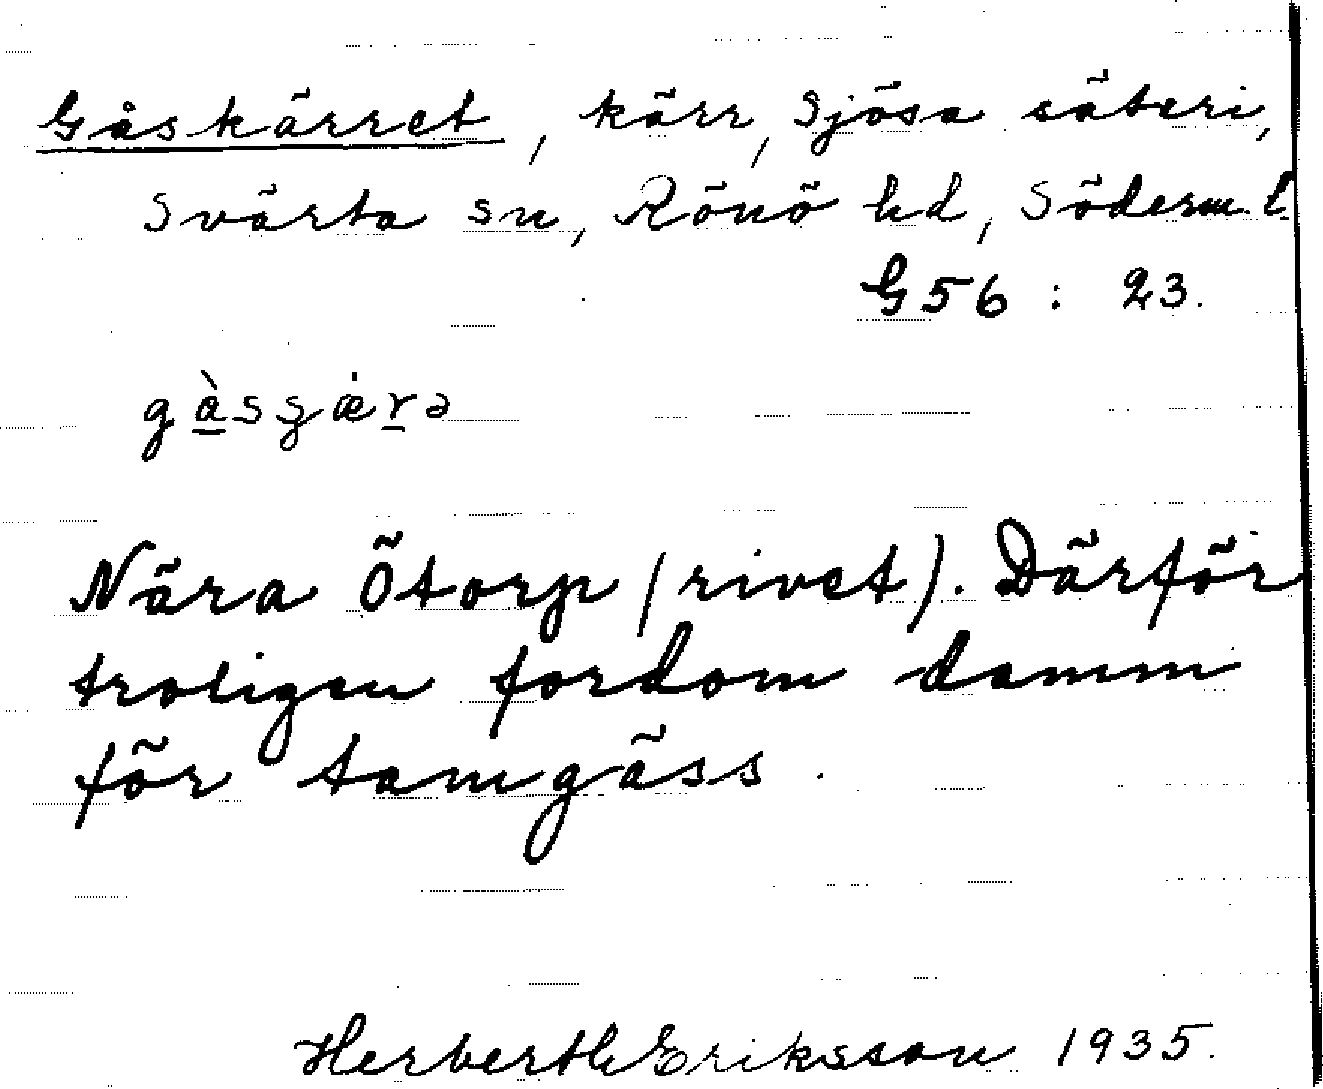 Gåskärret, kärr, Sjösa säteri,
Svärta sn, Rönö hd, Söderm l.
G56 : 23.
Nära Ötorp (rivet). Därför
troligen fordom damm
för tamgäss.
Herberth Eriksson 1935.